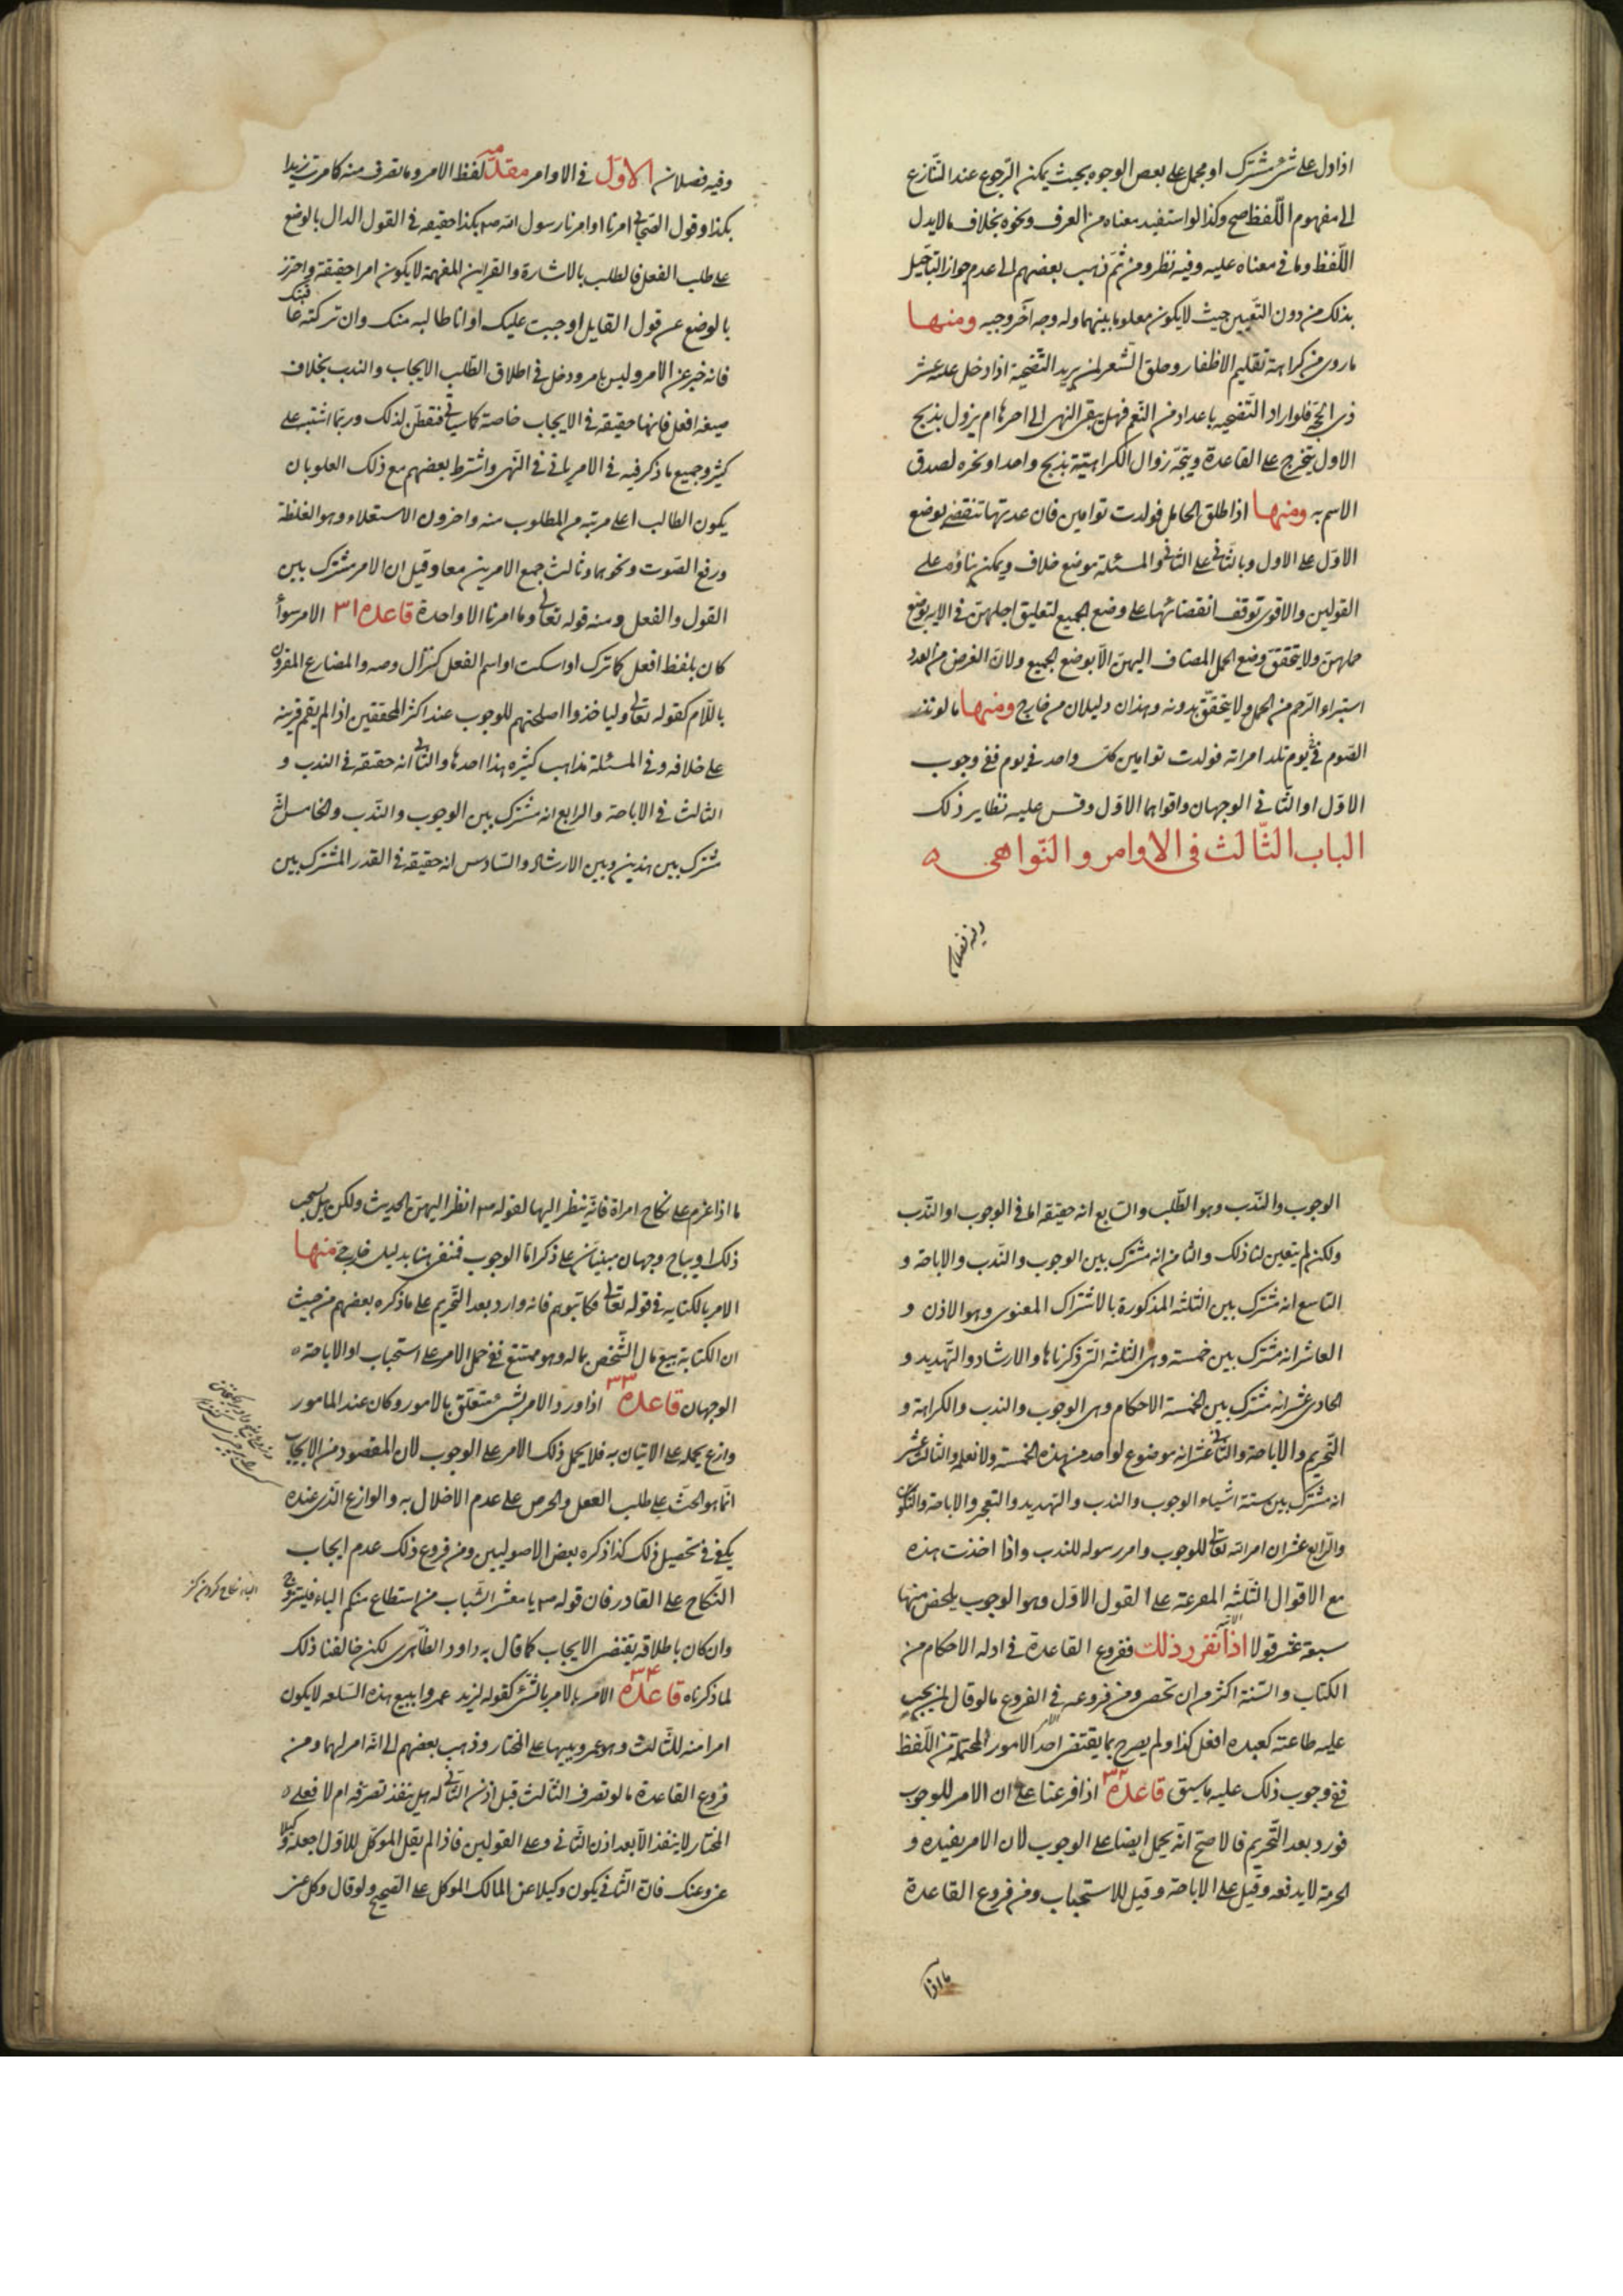 اذا دل على شئ مشترك او مجمل على بعض الوجوه بحيث يمكن الرّجوع عند التنازع
الى مفهوم اللّفظ صح وكذا لو استفيد معناه من العرف ونحوه بخلاف ما لا يدل
اللّفظ وما فى معناه عليه وفيه نظر ومن ثمّ ذهب بعضهم الى عدم جواز التاجيل
بذلك من دون التعيين حيث لا يكون معلوما بينهما وله وجه آخر وجيه ومنها
ما روى من كراهة تقليم الاظفار وحلق الشعر لمن يريد التضحية اذا دخل عليه عشر
ذى الحجّة فلو اراد التضحيه باعداد من النعم فهل يبقى النهى الى اخرها ام يزول بذبح
الاول يتخرج على القاعدة ويتجّه زوال الكراهيّة بذبح واحد او نحره لصدق
الاسم به ومنها اذا طلق الحامل فولدت توامين فان عدتها تنقضى بوضع
الاوّل على الاول وبالثانى على الثانى والمسئلة موضع خلاف ويمكن بناؤه على
القولين والاقوى توقف انقضائها على وضع الجميع لتعليق اجلهن فى الايه بوضع
حملهن ولا يتحقق وضع الحمل المضاف اليهن الّا بوضع الجميع ولان الغرض من العدد
استبراء الرّحم من الحمل ولا يتحقّق بدونه وهذان دليلان من خارج ومنها ما لو نذر
الصّوم فى يوم تلد امراته فولدت توامين كل واحد فى يوم ففى وجوب
الاوّل او الثّانى الوجهان واقواهما الاوّل وقس عليه نظاير ذلك
الباب الثّالث فى الاوامر والنّواهى ه
وفيه فصلان
وفيه فصلان الاوّل فى الاوامر مقدّمه لفظ الامر وما تصرف منه كامرت زيدا
بكذا وقول الصّحابى امرنا او امرنا رسول الله ص بكذا حقيقه فى القول الدال بالوضع
على طلب الفعل فالطلب بالاشارة والقراين المفهمة لا يكون امرا حقيقة واحترز
بالوضع عن قول القايل اوجبت عليك او انا طالبه منك وان تركته عاقبتك
فانه خبر عن الامر وليس بامر ودخل فى اطلاق الطّلب الايجاب والندب بخلاف
صيغه افعل فانها حقيقه فى الايجاب خاصة كما سياتى فتفطّن لذلك وربّما اشتبه على
كثير وجميع ما ذكر فيه فى الامر ياتى فى النّهى واشترط بعضهم مع ذلك العلو بان
يكون الطالب اعلى مرتبه من المطلوب منه واخرون الاستعلاء وهو الغلظة
ورفع الصّوت ونحوهما وثالث جمع الامرين معا وقيل ان الامر مشترك بين
القول والفعل ومنه قوله تعالى وما امرنا الا واحدة قاعده ٣١ الامر سواء
كان بلفظ افعل كاترك او اسكت او اسم الفعل كنزال وصه والمضارع المقرون
باللّام كقوله تعالى ولياخذوا اسلحتهم للوجوب عند اكثر المحققين اذا لم يقم قرينه
على خلافه وفى المسئلة مذاهب كثيره هذا احدها والثانى انه حقيقه فى الندب و
الثالث فى الاباحة والرابع انه مشترك بين الوجوب والنّدب والخامس انّه
مشترك بين هذين وبين الارشاد والسّادس انه حقيقه فى القدر المشترك بين
الوجوب والنّدب وهو الطّلب والسّابع انه حقيقه اما فى الوجوب او النّدب
ولكن لم يتعين لنا ذلك والثامن انه مشترك بين الوجوب والنّدب والاباحة و
التاسع انه مشترك بين الثلثه المذكورة بالاشتراك المعنوى وهو الاذن و
العاشر انه مشترك بين خمسة وهى الثلثه التى ذكرناها والارشاد والتّهديد و
الحادى عشر انه مشترك بين الخمسة الاحكام وهى الوجوب والندب والكراهة و
التّحريم والاباحة والثانى عشر انه موضوع لواحد من هذه الخمسة ولا نعلمه والثالث عشر
انه مشترك بين ستة اشياء الوجوب والندب والتهديد والتعجيز والاباحة والتكوين
والرّابع عشر ان امر الله تعالى للوجوب وامر رسوله للندب واذا اخذت هذه
مع الاقوال الثلثه المفرعة على القول الاوّل وهو الوجوب يلخص منها
سبعة عشر قولا اذا تقرر ذلك ففروع القاعدة فى ادله الاحكام من
الكتاب والسّنة اكثر من ان تحصر ومن فروعه فى الفروع ما لو قال لمن يجب
عليه طاعته كعبده افعل كذا ولم يصرح بما يقتضى احد الامور المحتملة من اللّفظ
ففى وجوب ذلك عليه ما سبق قاعده ٣٢ اذا فرعنا على ان الامر للوجوب
فورد بعد التّحريم فالاصح انّه يحمل ايضا على الوجوب لان الامر يفيده و
الحرمة لا يدفعه وقيل على الاباحة وقيل للاستحباب ومن فروع القاعدة
ما اذا
ما اذا عزم على نكاح امراة فانّه ينظر اليها لقوله ص انظر اليهن الحديث ولكن هل يستحب
ذلك او يباح وجهان مبنيان على ذكر اما الوجوب فمنفى هنا بدليل خارجى منها
الامر بالكتابه فى قوله تعالى فكاتبوهم فانه وارد بعد التّحريم على ما ذكره بعضهم من حيث
ان الكتابة بيع مال الشّخص بماله وهو ممتنع ففى حمل الامر على استحباب او الاباحة ه
الوجهان قاعده ٣٣ اذا ورد الامر بشئ متعلّق بالامور وكان عند المامور
وازع يحمله على الاتيان به فلا يحمل ذلك الامر على الوجوب لان المقصود من الايجاب
انّما هو الحثّ على طلب الفعل والحرص على عدم الاخلال به والوازع الذى عنده
يكفى فى تحصيل ذلك كذا ذكره بعض الاصوليين ومن فروع ذلك عدم ايجاب
النّكاح على القادر فان قوله ص يا معشر الشّباب من استطاع منكم الباه فليتزوج
وان كان باطلاقه يقتضى الايجاب كما قال به داود الظّاهرى لكن خالفنا ذلك
لما ذكرناه قاعده ٣٤ الامر بالامر بالشّئ كقوله لزيد مر عمروا ببيع هذه السّلعه لا يكون
امرا منه للثّالث وهو عمرو ببيعها على المختار وذهب بعضهم الى انّه امر لهما ومن
فروع القاعدة ما لو تصرف الثّالث قبل اذن الثّانى له هل ينفذ تصرّفه ام لا فعلى ه
المختار لا ينفذ الّا بعد اذن الثّانى وعلى القولين فاذا لم يقل الموكّل للاوّل اجعله وكيلا
عنى وعنك فانّ الثّانى يكون وكيلا عن المالك الموكل على الصّحيح ولو قال وكل عنى